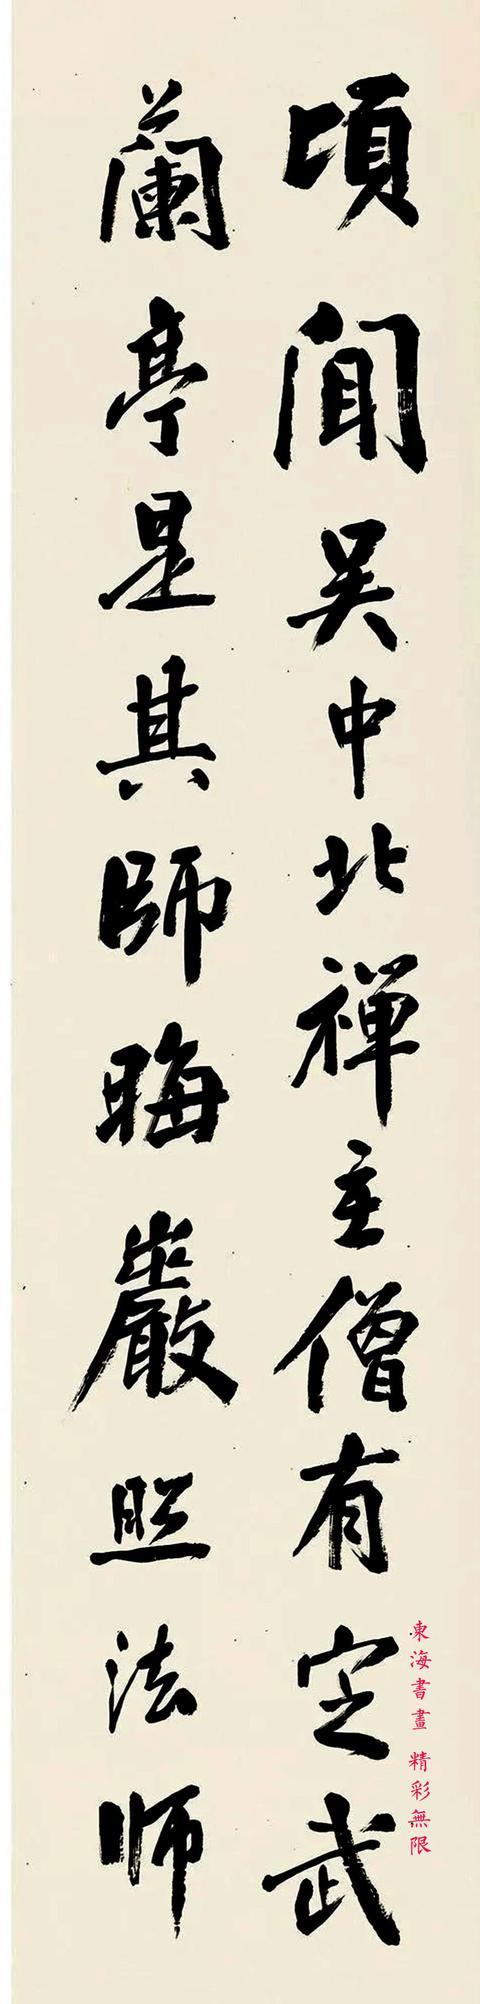 頃聞吳中北禪主僧有定武
蘭亭是其師晦巖照法师
東海書畫 精彩無限